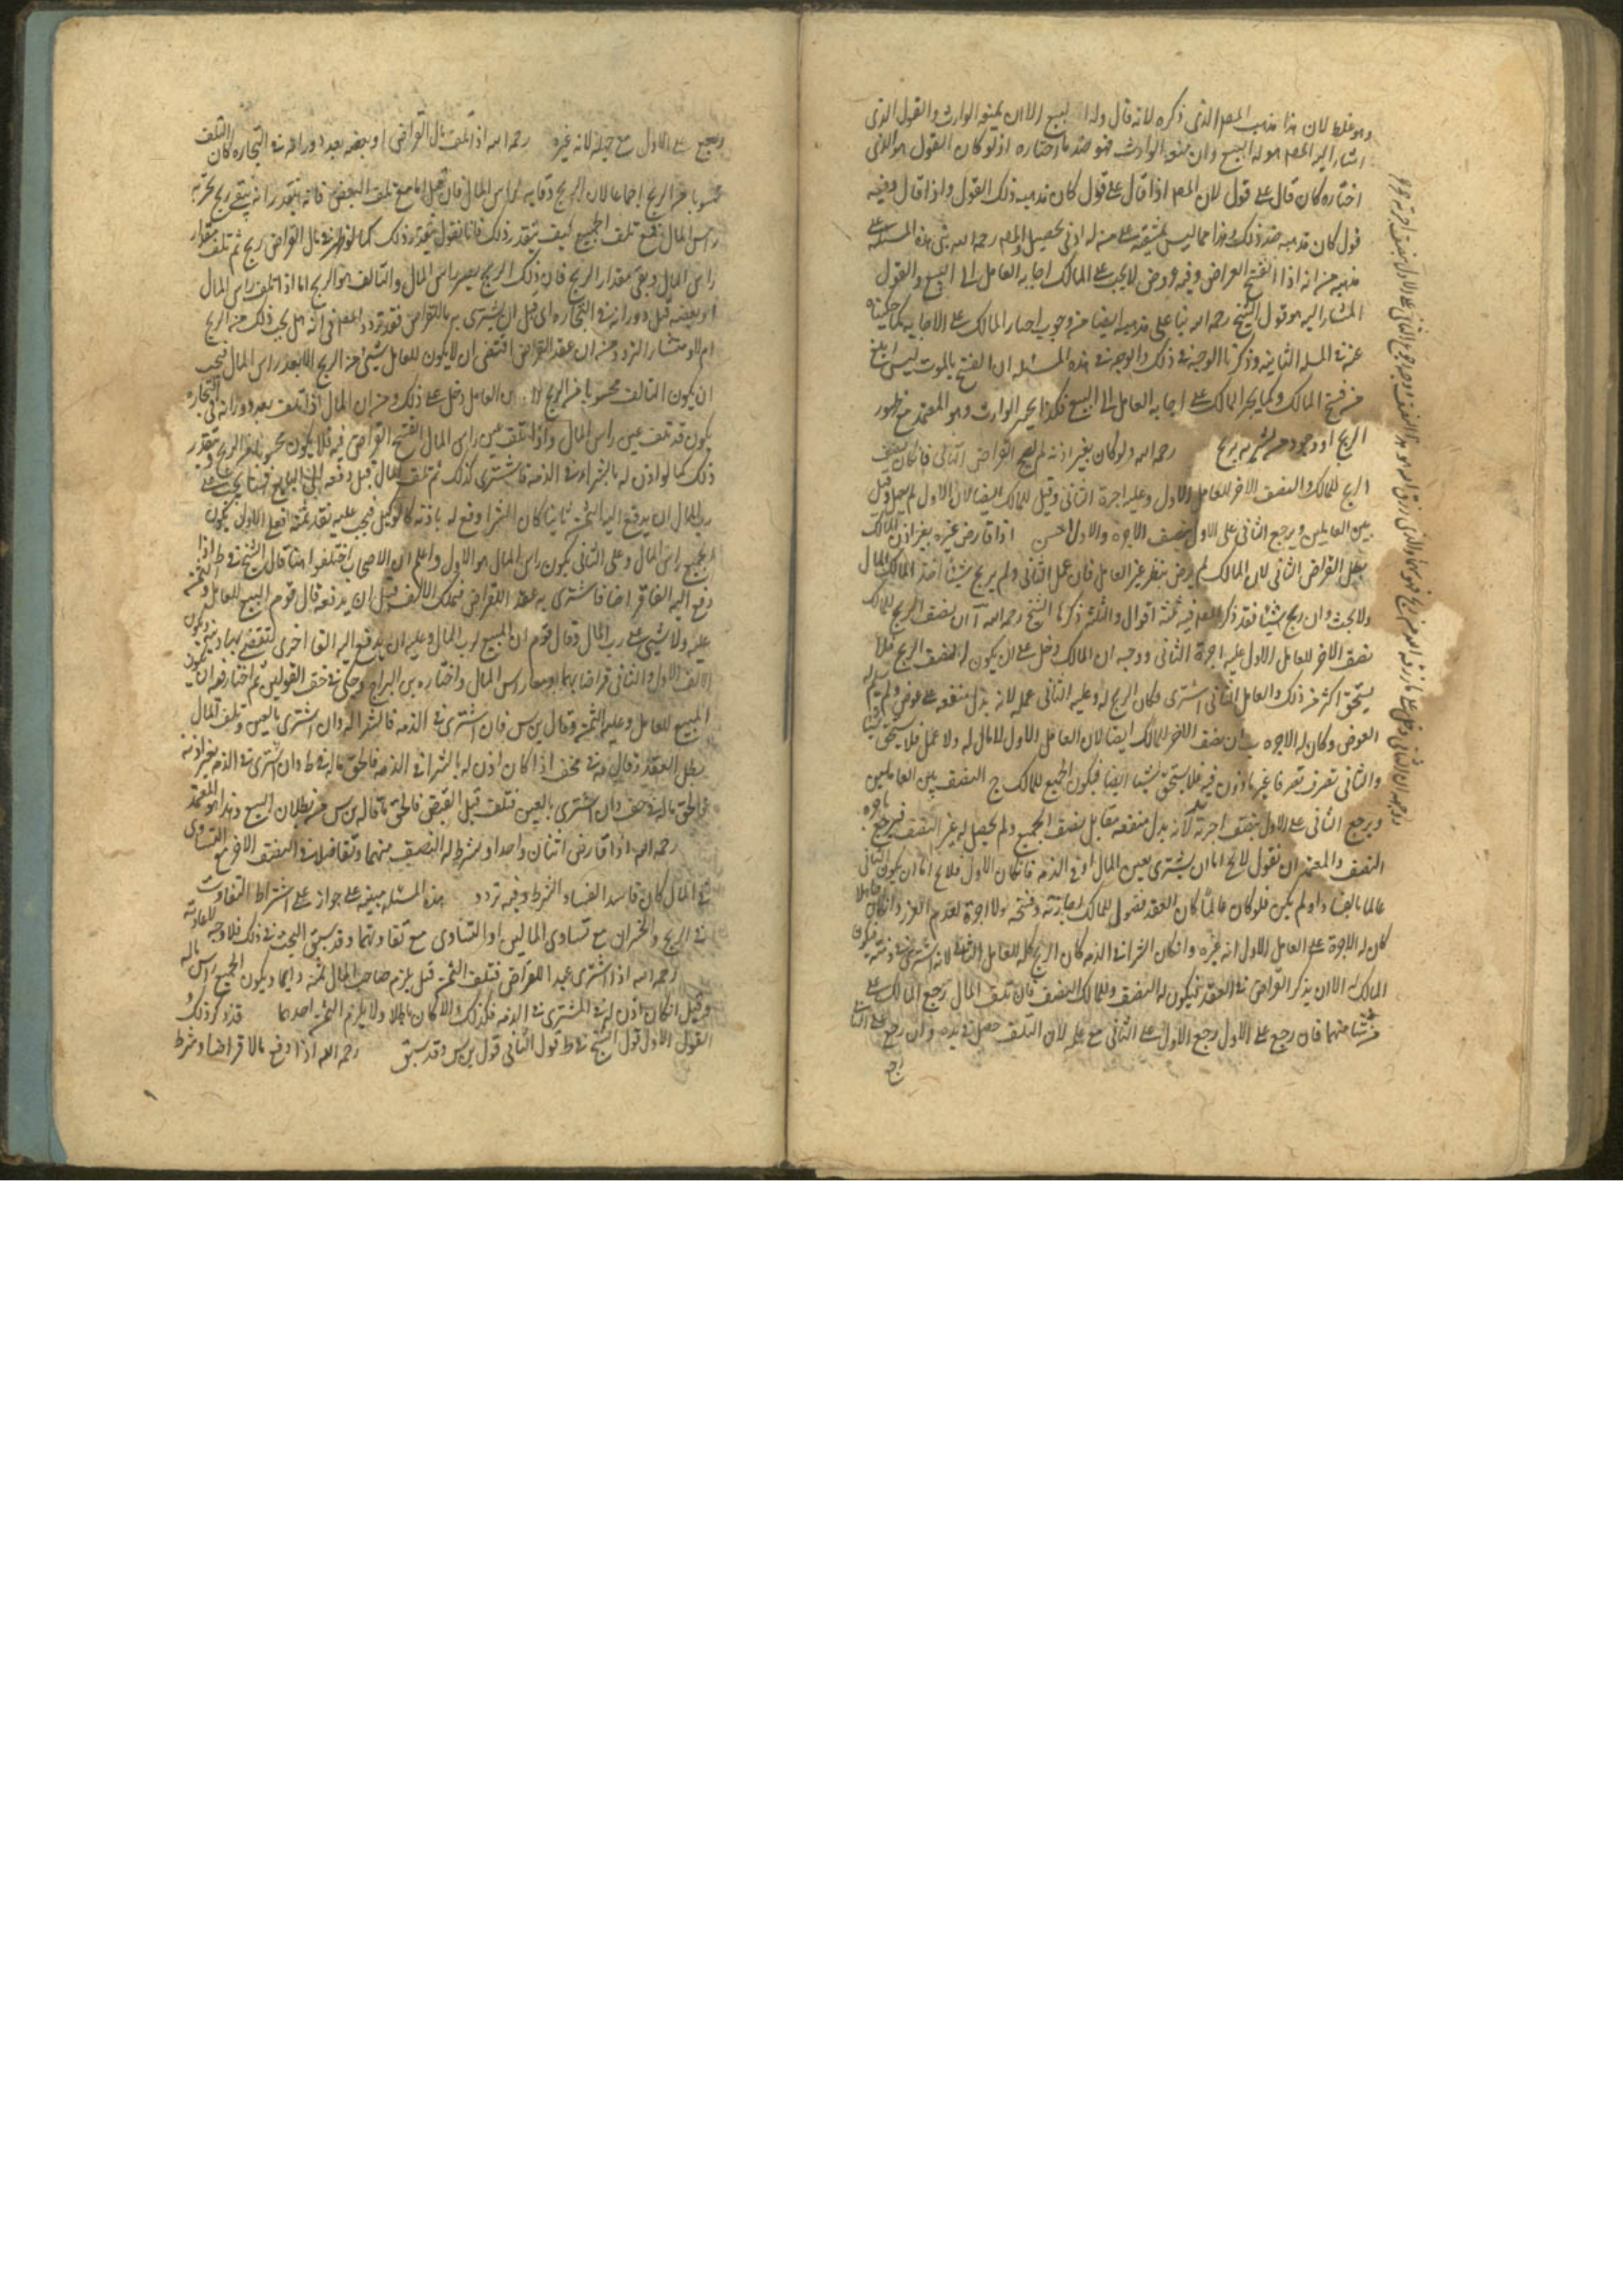 وهو غلط لان هذا مذهب المصر الذي ذكره لانه قال وله البيع الا ان يمنعه الوارث والقول الذي
اشار اليه المصر هو له البيع وان منعه الوارث فهو ضد ما اختاره اذ لو كان القول هو الذي
اختاره كان قال على قول لان المصر اذا قال على قول كان مذهبه ذلك القول واذا قال وفيه
قول كان مذهبه ضد ذلك وهذا مما ليس يشتبه على من له ادنى تحصيل والمصر رحمه الله بنى هذه المسئلة على
مذهبه من انه اذا انفسخ القراض وفيه عروض لا يجب على المالك اجابه العامل الى البيع والقول
المشار اليه هو قول الشيخ رحمه الله بناء على مذهبه ايضا من وجوب اجبار المالك على الاجابه كما حكيناه
عنه في المسله الثانيه وذكرنا الوجه في ذلك والوجه في هذه المسئله ان الفسخ بالموت ليس ابلغ
من فسخ المالك وكما يجبر المالك على اجابه العامل الى البيع فكذا يجبر الوارث وهو المعتمد مع ظهور
الربح او وجود مشتر به يربح رحمه الله ولو كان بغير اذنه لم يصح القراض الثاني فان كان نصف
الربح للمالك والنصف الاخر للعامل الاول وعليه اجرة الثاني وقيل للمالك ايضا لان الاول لم يعمل وقيل
بين العاملين ويرجع الثاني على الاول بنصف الاجره والاول احسن اذا قارض غيره بغير اذن المالك
بطل القراض الثاني لان المالك لم يرض بنظر غير العامل فان عمل الثاني ولم يربح شيئا اخذ المالك المال
ولا بحث وان ربح شيئا فقد ذكر المصر فيه ثلثه اقوال والثلثه ذكرها الشيخ رحمه الله آ ان نصف الربح للمالك
نصف الاخر للعامل الاول عليه اجرة الثاني ووجهه ان المالك دخل على ان يكون له نصف الربح فلا
يستحق اكثر من ذلك والعامل الثاني اشترى وكان الربح له وعليه الثاني عمله لانه بذل منفعه على عوض ولم يسلم له
العوض وكان له الاجره ب ان نصف الاخر للمالك ايضا لان العامل الاول لا مال له ولا عمل فلا يستحق شيئا
والثاني تصرف تصرفا غير ماذون فيه فلا يستحق شيئا ايضا فيكون الجميع للمالك ج النصف بين العاملين
ويرجع الثاني على الاول بنصف اجرته لانه بذل منفعه مقابل نصف الجميع ولم يحصل له غير النصف فيرجع باجره
النصف والمعتمد ان نقول لا يخ اما ان يشترى بعين المال او في الذمه فان كان الاول فلا يخ اما ان يكون الثاني
عالما بالفساد او لم يكن فلو كان عالما كان العقد فضولى للمالك اجازته وفسخه ولا اجرة لعدم الغرر وان كان جاهلا
كان له الاجرة على العامل الاول لانه غره وان كان الشراء في الذمه كان الربح كله للعامل الثاني لانه اشترى في ذمته فيكون
المالك له الا ان يذكر القراض في العقد فيكون له النصف وللمالك النصف فان تلف المال رجع المالك على
من شاء منهما فان رجع على الاول رجع الاول على الثاني مع علمه لان التلف حصل في يده وان رجع على الثاني
رجع
ويرجع على الاول مع جهله لانه غره رحمه الله اذا تلف مال القراض او بعضه بعد دورانه في التجاره كان التلف
محسوبا من الربح اجماعا لان الربح وقايه لراس المال فان قيل اما مع تلف البعض فانه يتقدر انه يبقى ربح يجبر به
راس المال فمع تلف الجميع كيف يتقدر ذلك فانا نقول يتقدر ذلك كما لو ظهر في مال القراض ربح ثم تلف مقدار
راس المال وبقي مقدار الربح فان ذلك الربح يصير راس المال والتالف هو الربح اما اذا تلف راس المال
او بعضه قبل دورانه في التجاره اي قبل ان يشترى به بالقراض فقد تردد المصر في انه هل يجب ذلك من الربح
ام لا ومنشأ التردد من ان عقد القراض اقتضى ان لا يكون للعامل شيئ من الربح الا بعد راس المال فيجب
ان يكون التالف محسوبا من الربح لان العامل دخل على ذلك ومن ان المال اذا تلف بعد دورانه في التجاره
يكون قد تلف عين راس المال واذا تلف عين راس المال انفسخ القراض فيه فلا يكون محسوبا من الربح ويتقدر
ذلك كما لو اذن له بالشراء في الذمه فاشترى كذلك ثم تلف المال قبل دفعه الى البايع فهنا يجب على
رب المال ان يدفع اليه الثمن ثانيا لان الشراء وقع له باذنه كالوكيل فيجب عليه نقد ثمنه فعلى الاول يكون
الجميع راس المال وعلى الثاني يكون راس المال هو الاول واعلم ان الاصحاب اختلفوا هنا قال الشيخ في ط اذا
دفع اليه الفا قراضا فاشترى به عقد القراض فهلك الالف قبل ان يدفعه قال قوم البيع للعامل والثمن
عليه ولا شيئ على رب المال وقال قوم ان المبيع لرب المال وعليه ان يدفع اليه الفا اخرى ليقضي بها دينه ويكون
الالف الاول والثاني قراضا وهما معا راس المال واختاره ابن البراج وحكى في خف القولين ثم اختار فيه ان يكون
المبيع للعامل وعليه الثمن وقال ابن س فان اشترى في الذمه فالشراء له وان اشترى بالعين وتلف المال
بطل العقد وقال في مخف اذا كان اذن له بالشراء في الذمه فالحق ما له في ط وان اشترى في الذمه بغير اذنه
فالحق ما له في خف وان اشترى بالعين فتلف قبل القبض فالحق ما قاله بن س من بطلان البيع وهذا هو المعتمد
رحمه الله اذا قارض اثنان واحدا وشرط له النصف منهما وتفاضلا في النصف الاخر مع التساوى
في المال كان فاسدا لفساد الشرط وفيه تردد هذه المسئله مبنيه على جواز على اشتراط التفاوت
في الربح والخسران مع تساوى المالين او التساوى مع تفاوتهما وقد سبق البحث في ذلك فلا وجه لاعادته
رحمه الله اذا اشترى عبدا للقراض فتلف الثمن قبل يلزم صاحب المال ثمنه دايما ويكون الجميع راس ماله
وقيل ان كان اذن له في المشترى في الذمه فكذلك والا كان باطلا ولا يلزم الثمن احدهما قد ذكر ذلك و
القول الاول قول الشيخ في ط قول الثاني قول بن س وقد سبق رحمه الله اذا دفع مالا قراضا وشرط